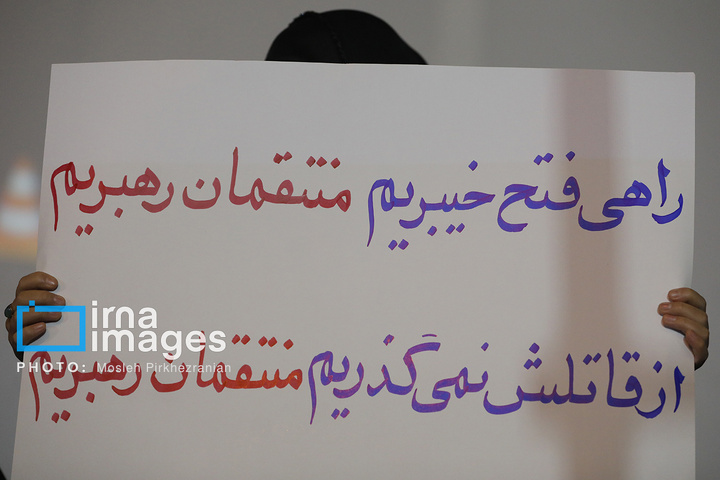 راهی فتح خیبریم منتقمان رهبریم
از قاتلش نمی‌گذریم منتقمان رهبریم
irna
images
PHOTO: Mosleh Pirkhezranian